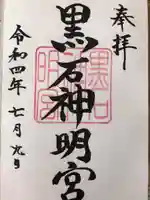 奉拝
黒石神明宮
令和四年七月九日
黒石
神明宮